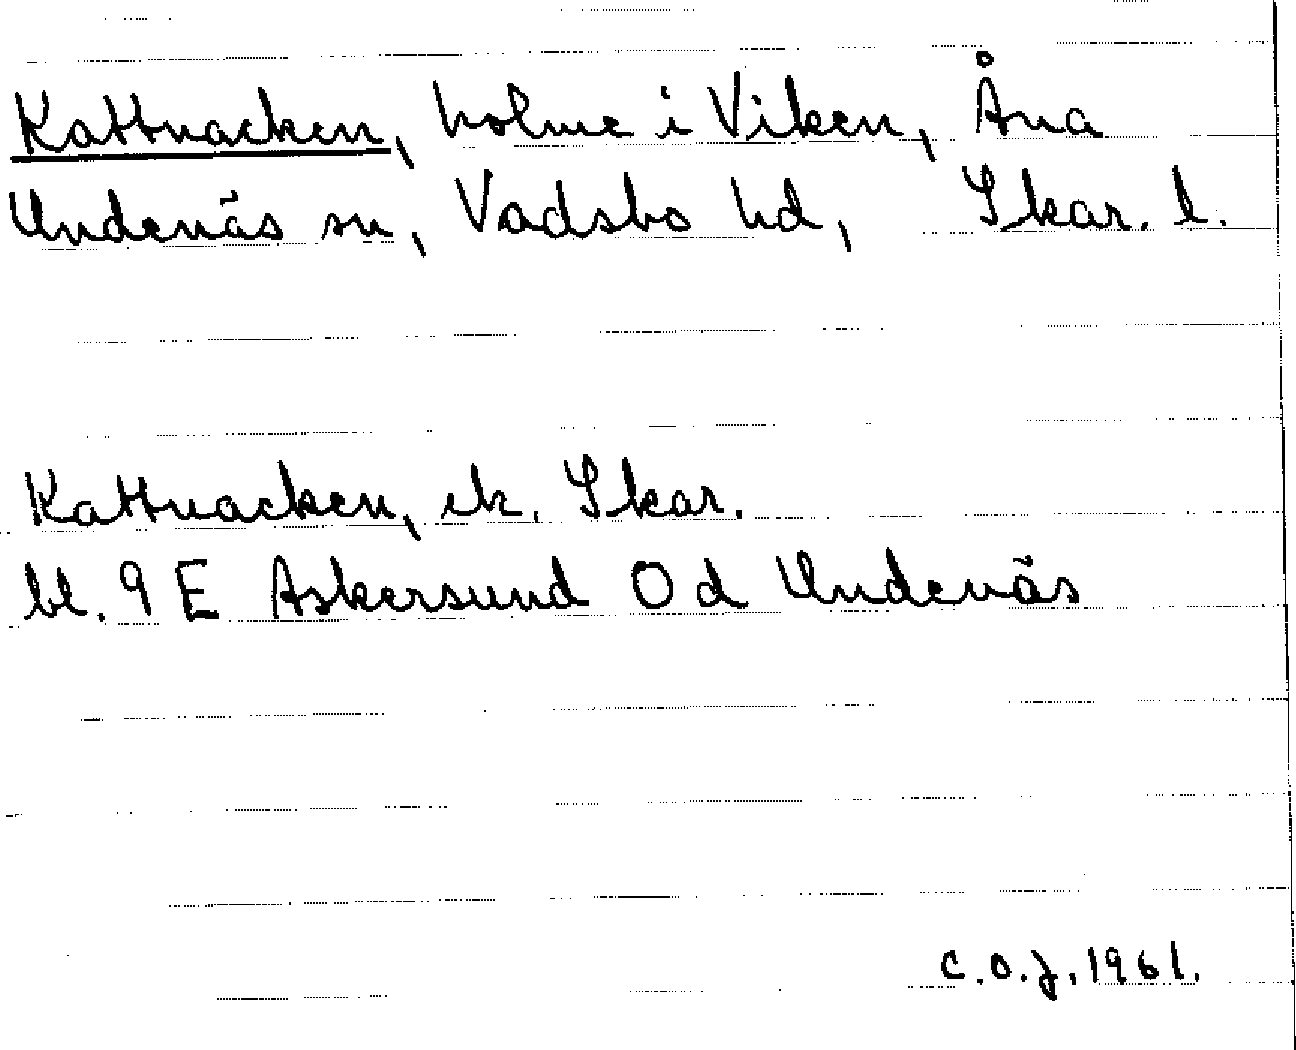 Kattnacken, holme i Viken, Åna
Undenäs sn, Vadsbo hd, Skar. l.
Kattnacken, ek. Skar.
bl. 9 E Askersund O d Undenäs
C.O.J. 1961.